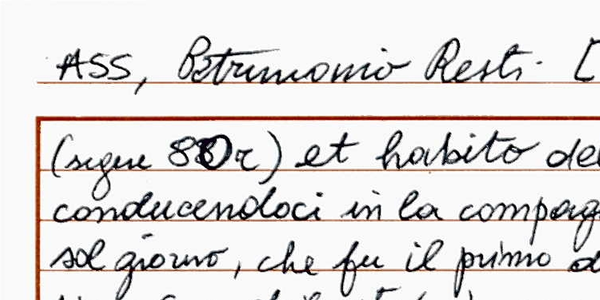 ASS, Patrimonio Resti. [
(segue 880r) et habito del
conducendoci in la compag
sol giorno, che fu il primo d